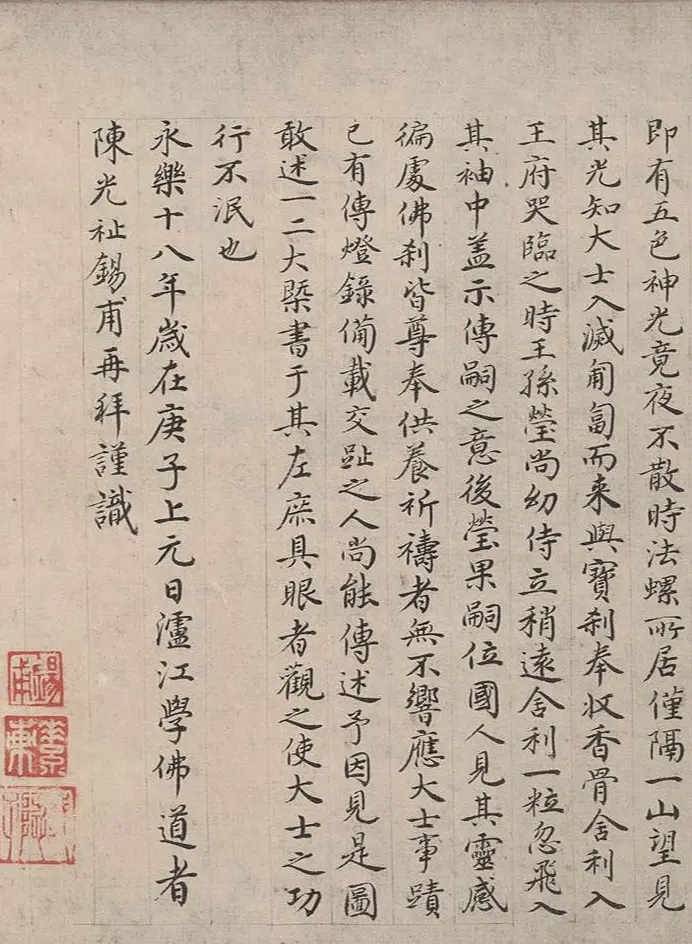 即有五色神光竟夜不散時法螺所居僅隔一山望見
其光知大士入滅匍匐而来與寶刹奉收香骨舍利入
王府哭臨之時王孫瑩尚幼侍立稍遠舍利一粒忽飛入
其袖中盖示傳嗣之意後瑩果嗣位國人見其靈感
徧處佛刹皆尊奉供養祈禱者無不響應大士事蹟
已有傳燈錄備載交趾之人尚能傳述予因見是圖
敢述一二大槩書于其左庶具眼者觀之使大士之功
行不泯也
永樂十八年歲在庚子上元日瀘江學佛道者
陳光祉錫甫再拜謹識
錫甫